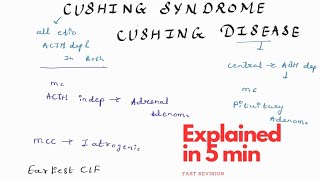 CUSHING SYNDROME
CUSHING DISEASE
all etio
ACTH dep &
In Both
central → ADH dep
mc
ACTH indep → Adrenal
adenoma
mc
Pituitary
Adenoma
mcc → Iatrogenic
Earliest C/F
Explained
in 5 min
FAST REVISION